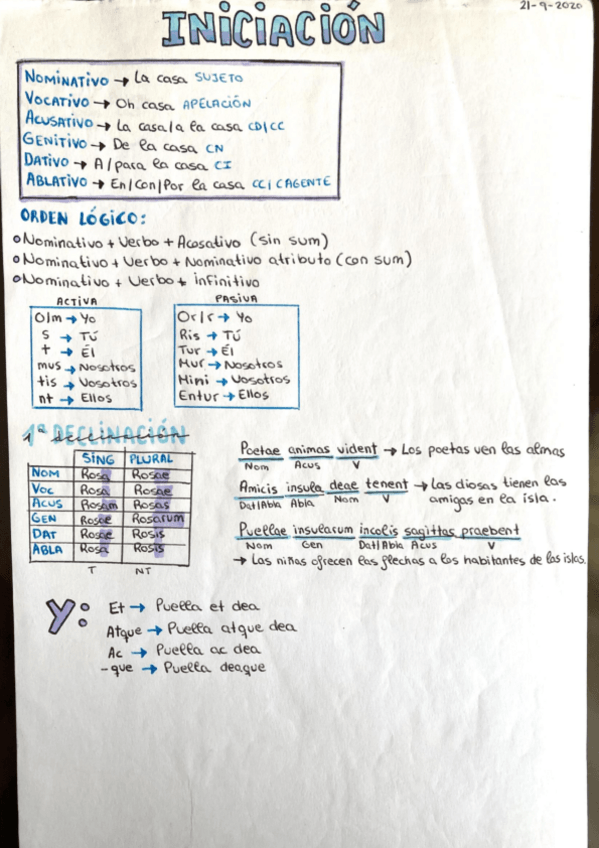 21-9-2020
INICIACIÓN
NOMINATIVO → La casa SUJETO
VOCATIVO → Oh casa APELACIÓN
ACUSATIVO → La casa/a la casa CD/CC
GENITIVO → De la casa CN
DATIVO → A/para la casa CI
ABLATIVO → En/Con/Por la casa CC/CAGENTE
ORDEN LÓGICO:
Nominativo + Verbo + Acusativo (sin sum)
Nominativo + Verbo + Nominativo atributo (con sum)
Nominativo + Verbo + infinitivo
ACTIVA
O/m → Yo
S → Tú
t → Él
mus → Nosotros
tis → Vosotros
nt → Ellos
PASIVA
Or/r → Yo
Ris → Tú
Tur → Él
Mur → Nosotros
Mini → Vosotros
Entur → Ellos
1ª DECLINACIÓN
SING PLURAL
NOM Rosa Rosae
VOC Rosa Rosae
ACUS Rosam Rosas
GEN Rosae Rosarum
DAT Rosae Rosis
ABLA Rosa Rosis
T NT
Poetae animas vident → Los poetas ven las almas
Nom Acus V
Amicis insula deae tenent → Las diosas tienen las
Dat/Abla Abla Nom V amigas en la isla.
Puellae insularum incolis sagittas praebent
Nom Gen Dat/Abla Acus V
→ Las niñas ofrecen las flechas a los habitantes de las islas.
Y:
Et → Puella et dea
Atque → Puella atque dea
Ac → Puella ac dea
-que → Puella deaque